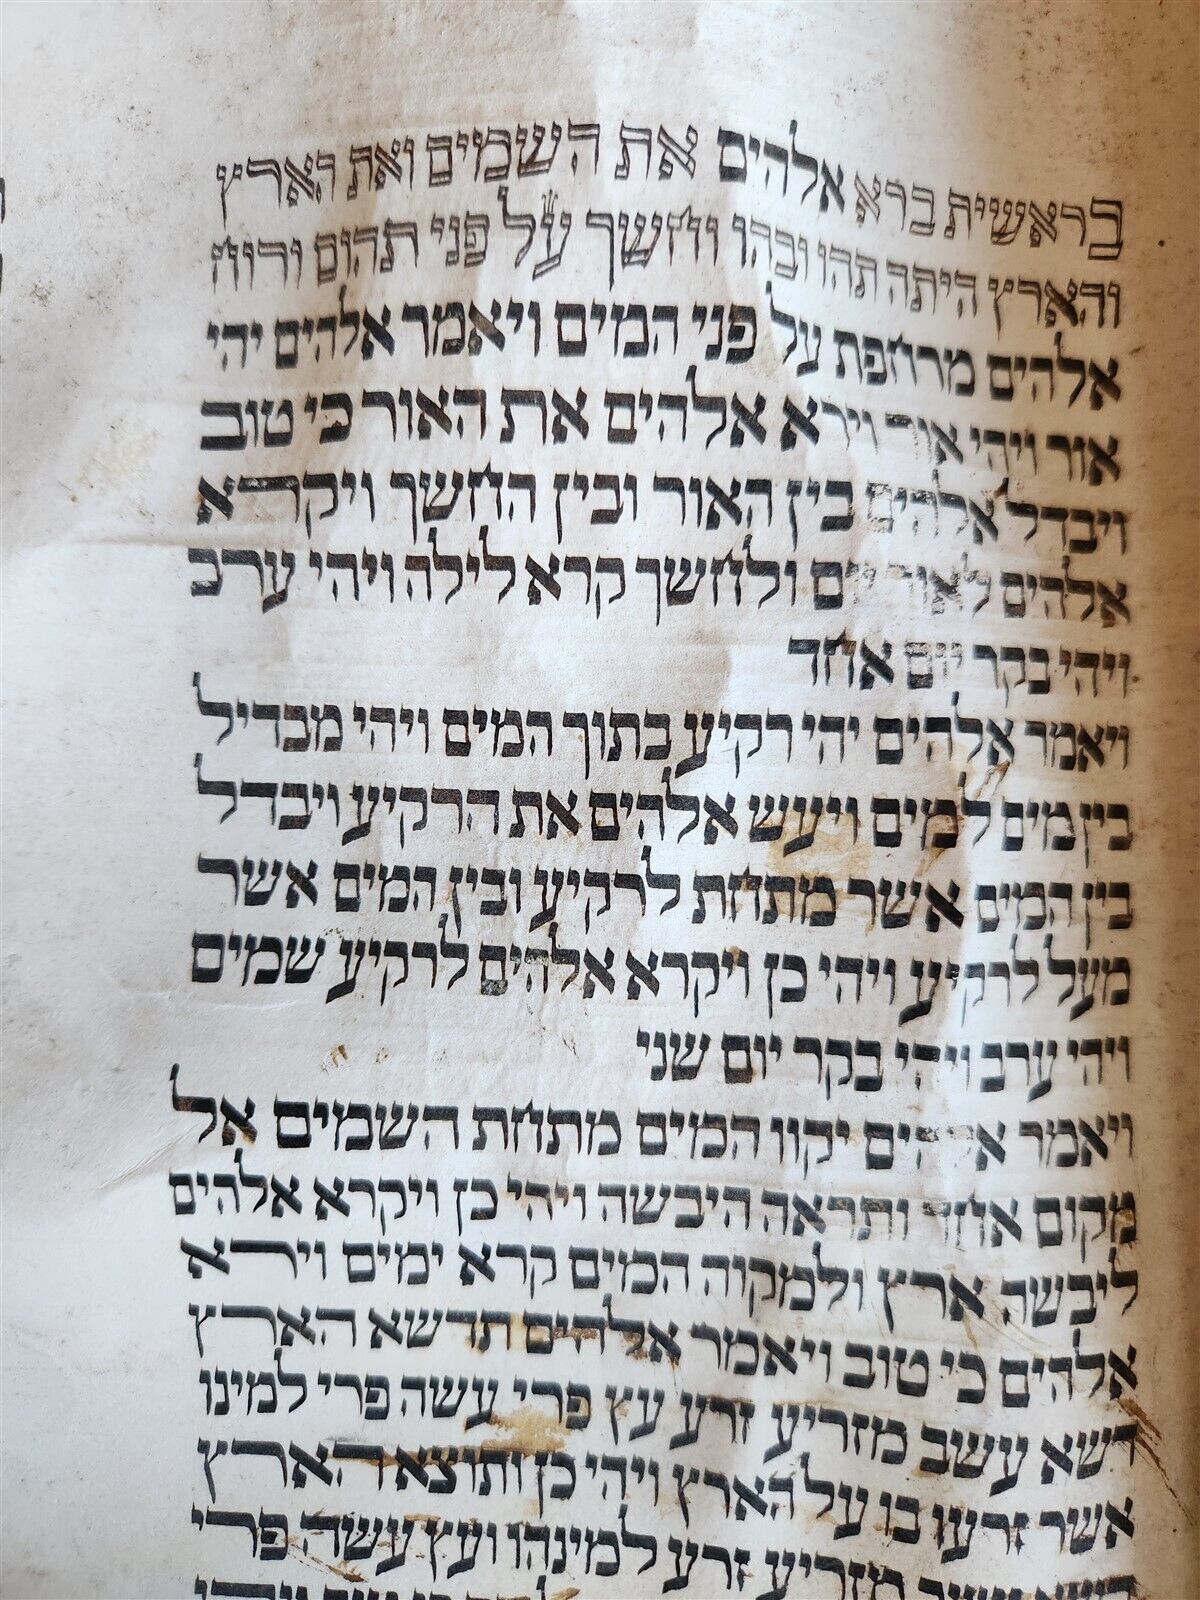 בראשית ברא אלהים את השמים ואת הארץ
והארץ היתה תהו ובהו וחשך על פני תהום ורוח
אלהים מרחפת על פני המים ויאמר אלהים יהי
אור ויהי אור וירא אלהים את האור כי טוב
ויבדל אלהים בין האור ובין החשך ויקרא
אלהים לאור יום ולחשך קרא לילה ויהי ערב
ויהי בקר יום אחד
ויאמר אלהים יהי רקיע בתוך המים ויהי מבדיל
בין מים למים ויעש אלהים את הרקיע ויבדל
בין המים אשר מתחת לרקיע ובין המים אשר
מעל לרקיע ויהי כן ויקרא אלהים לרקיע שמים
ויהי ערב ויהי בקר יום שני
ויאמר אלהים יקוו המים מתחת השמים אל
מקום אחד ותראה היבשה ויהי כן ויקרא אלהים
ליבשה ארץ ולמקוה המים קרא ימים וירא
אלהים כי טוב ויאמר אלהים תדשא הארץ
דשא עשב מזריע זרע עץ פרי עשה פרי למינו
אשר זרעו בו על הארץ ויהי כן ותוצא הארץ
מזריע זרע למינהו ועץ עשה פרי